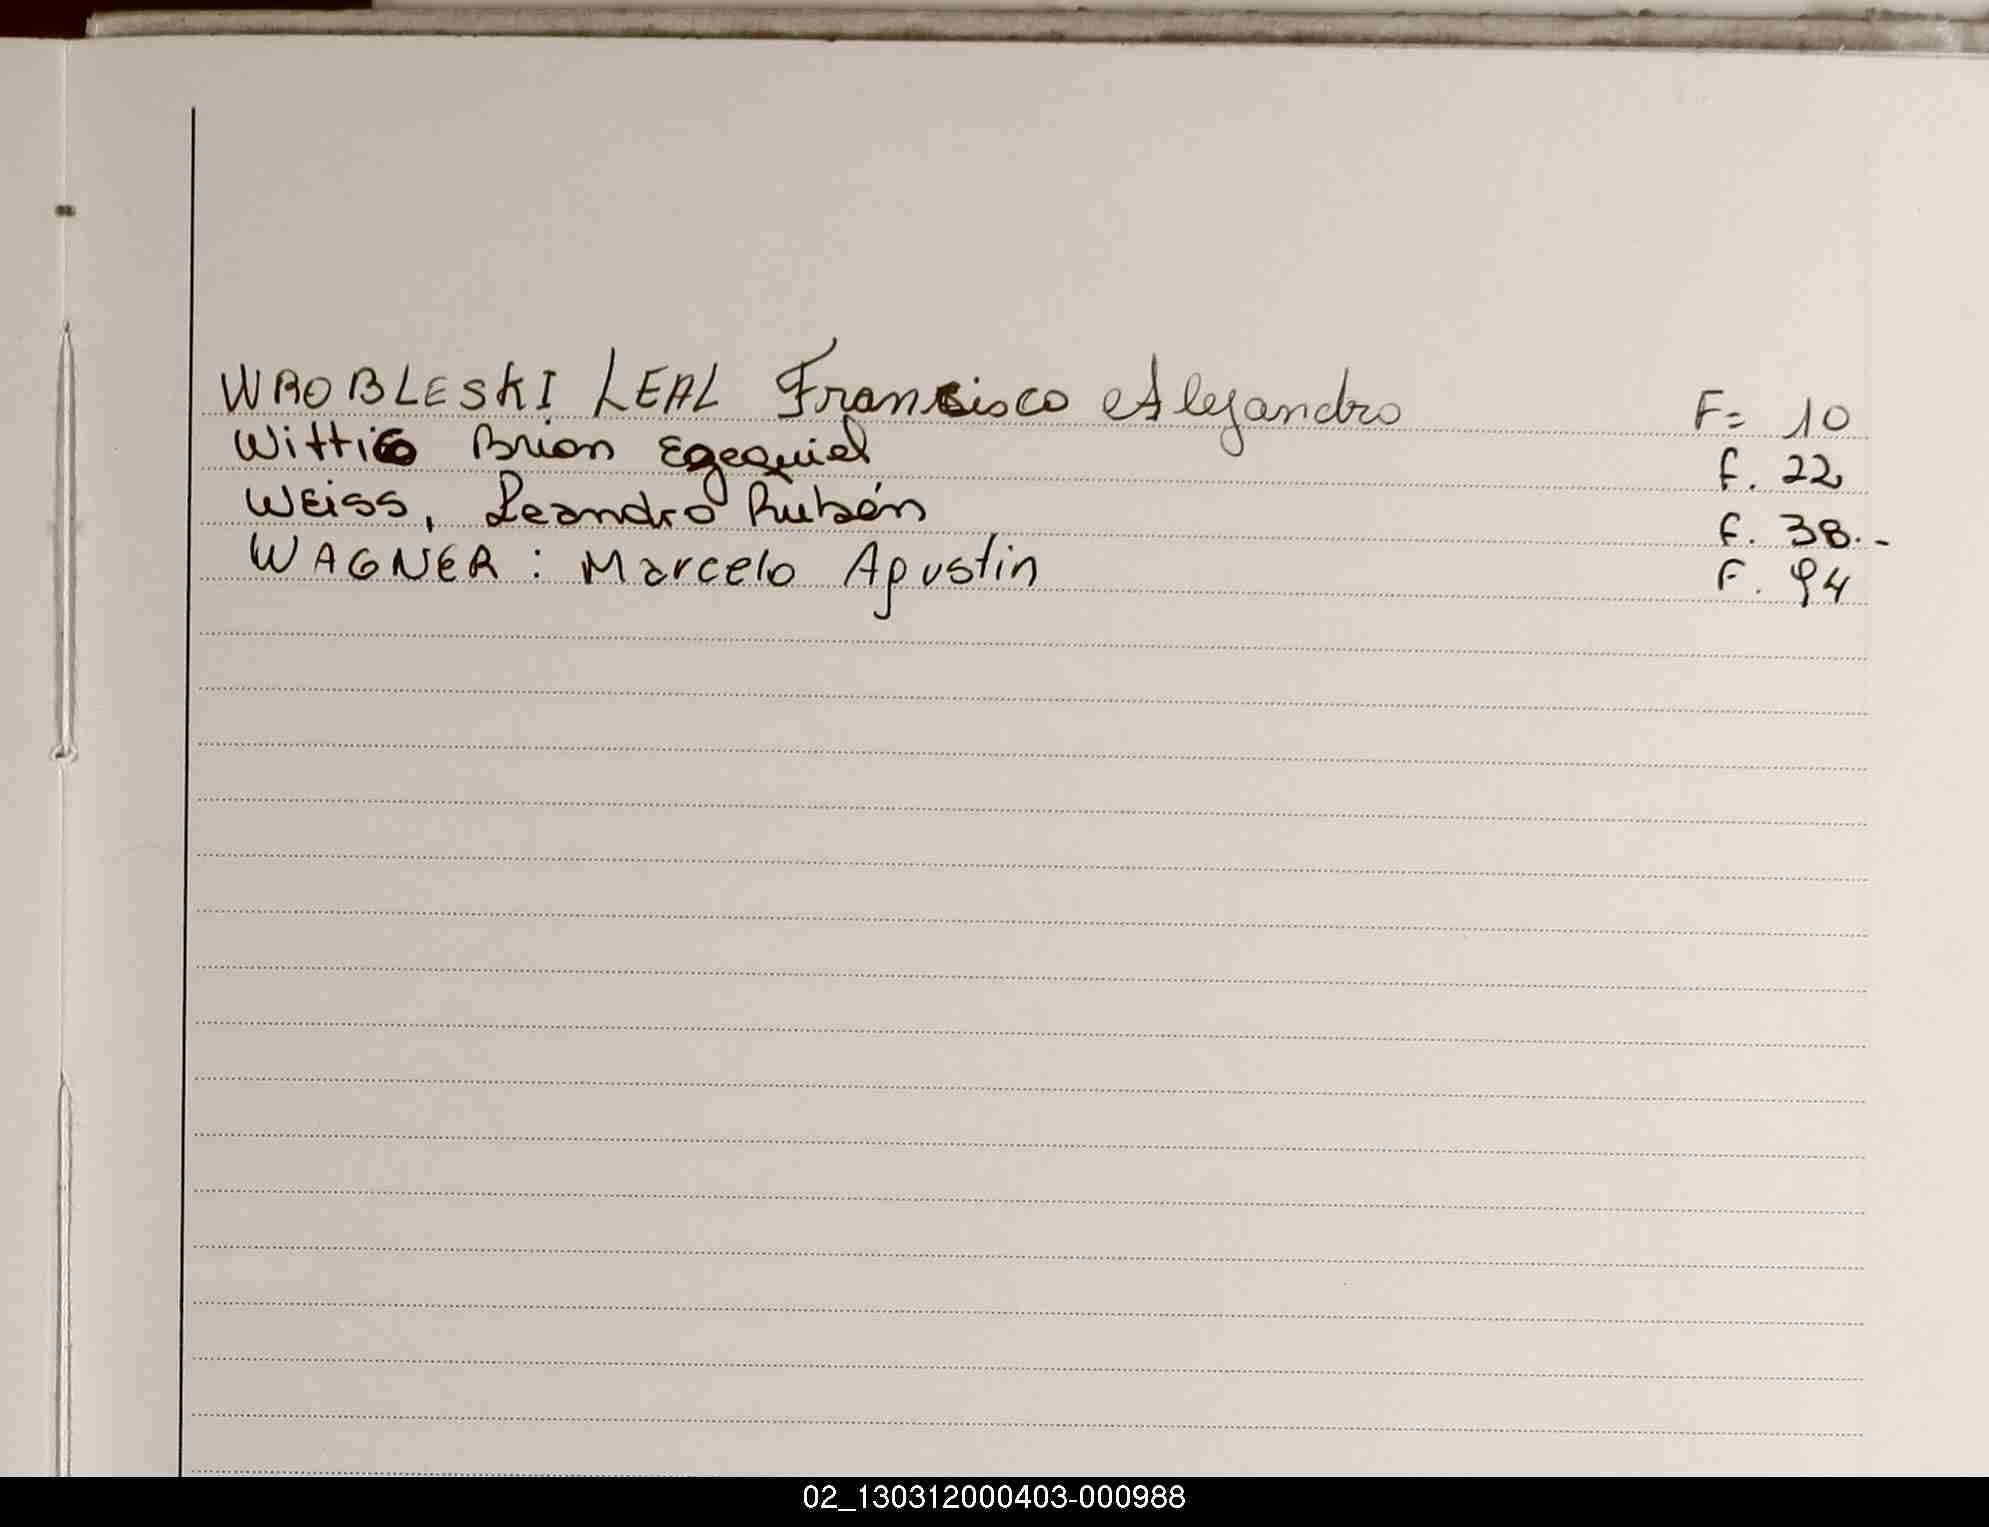 WROBLESKI LEAL Francisco Alejandro F= 10
Wittig Brian Ezequiel F. 22
Weiss, Leandro Rubén F. 38.-
WAGNER: Marcelo Agustin F. 94
02_130312000403-000988